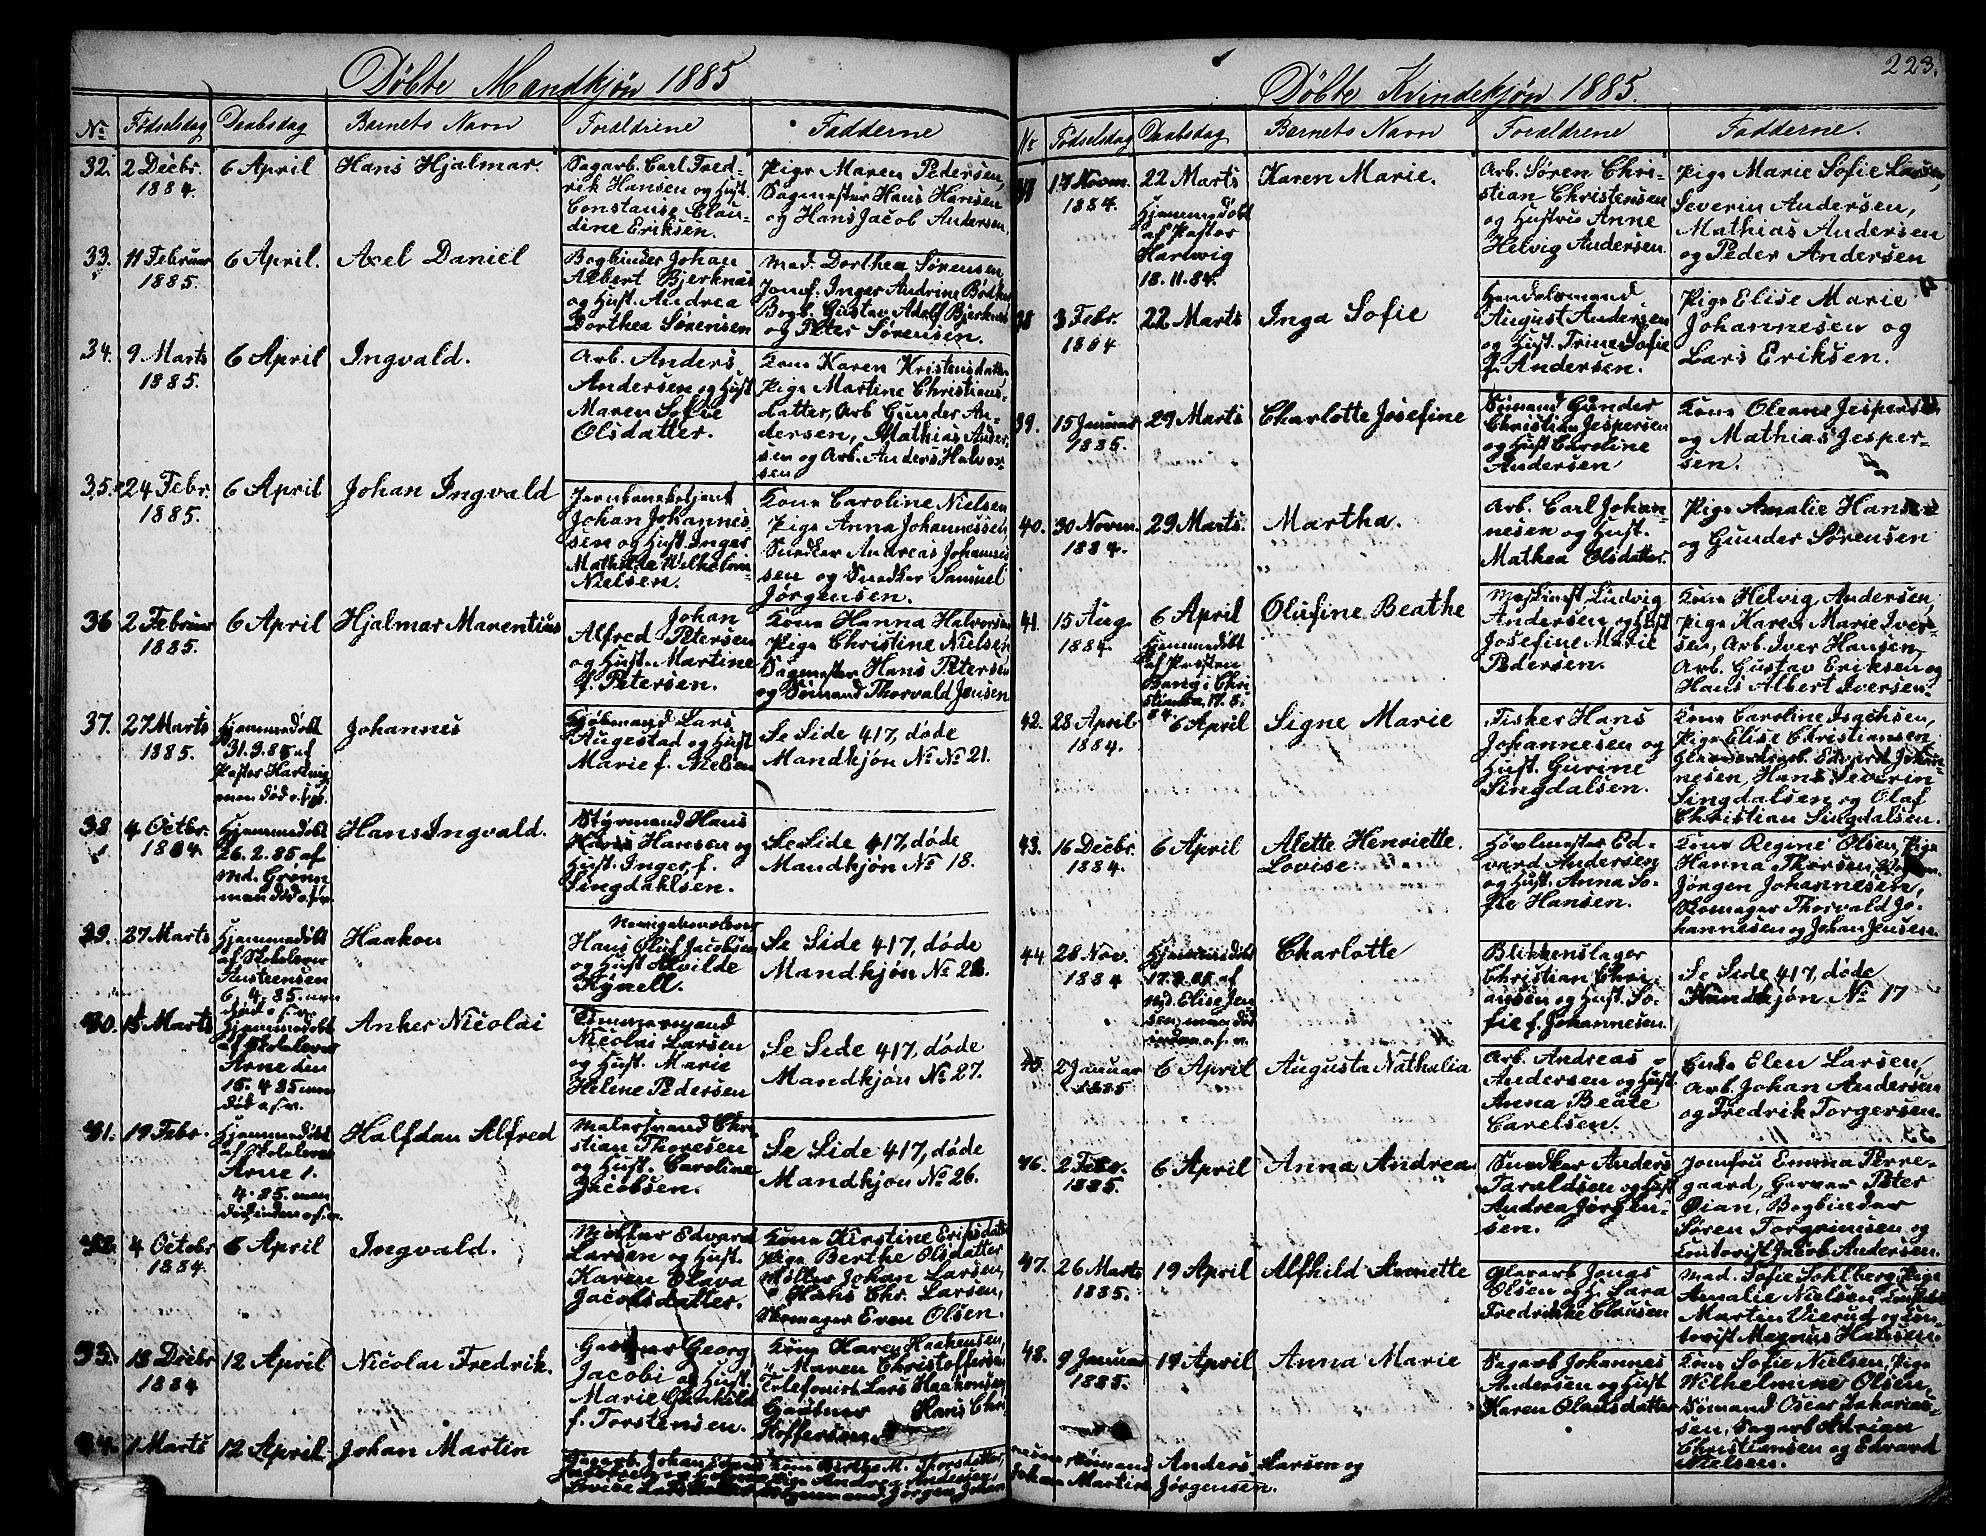 Døbte Mandkjøn 1885
No Fødselsdag Daabsdag Barnets Navn Forældrene Fadderne
32. 2 Decbr. 1884. 6 April Hans Hjalmar.
Sagarb. Carl Fred-
rik Hansen og Hust.
Constanse Clau-
dine Eriksen.
Pige Maren Pedersen,
Sagmester Hans Hansen
og Hans Jacob Andersen.
33. 11 Februar 1885. 6 April. Axel Daniel
Bogbinder Johan
Albert Bjerknæs
og Hust. Andrea
Dorthea Sørensen
Mad. Dorthea Sørensen,
Jomf. Inger Andrine Bødker
Bogb. Gustav Adolf Bjerknæs
og Peter Sørensen.
34. 9 Marts 1885. 6 April Ingvald.
Arb. Anders
Andersen og Hust
Maren Sofie
Olsdatter.
Kone Karen Kristensdatter
Pige Martine Christians-
datter, Arb Gunder An-
dersen, Mathias Ander-
sen og Arb. Anders Halvor-
sen
35. 24 Febr. 1885. 6 April Johan Ingvald
Jernbanebetjent
Johan Johannes-
sen og Hust. Inger
Mathilde Vilhelmi-
Nielsen.
Kone Caroline Nielsen
Pige Anna Johannessen,
Snedker Andreas Johannes
sen og Snedker Samuel
Jørgensen.
36 2 Februar 1885. 6 April Hjalmar Marentius
Johan
Alfred Petersen
og Hust. Martine
f. Petersen.
Kone Hanna Halvorsen
Pige Christine Nielsen
Sagmester Hans Petersen
og Sømand Thorvald Jensen
37. 27 Marts 1885.
Hjemmedøbt
31.3.85 af
Pastor Hartvig
men død o.s.v.
Johannes
Kjøbmand Lars
Augestad og Hust
Marie f. Nielsen
Se Side 417, døde
Mandkjøn No No 21.
38 4 Octbr. 1884
Hjemmedøbt
26.2.85 af
Md. Grøn
men død o.s.v.
Hans Ingvald.
Styrmand Hans
Hansen og
Hust. Inger f.
Singdahlsen.
Se Side 417, døde
Mandkjøn No 18.
39. 27 Marts
Hjemmedøbt
af Skolelærer
Austeensen
6. 4. 85. men
død o.s.v.
Haakon
Hans Oluf Jacobsen
og Hust. Alvilde
Kynell.
Se Side 417, døde
Mandkjøn No
40. 15 Marts
Hjemmedøbt
af Skolelærer
Arne den
15. 4. 85 men
død o.s.v.
Anker Nicolai
Tømmermand
Nicolai Larsen
og Hust. Marie
Helene Pedersen
Se Side 417, døde
Mandkjøn No 27.
41. 19 Febr.
Hjemmedøbt
af Skolelærer
Arne 1.
4. 85. men
død inden o.s.v.
Halfdan Alfred
Malersvend Chri
stian Thoresen
og Hust. Caroline
Jacobsen.
Se Side 417, døde
Mandkjøn No 26.
42. 4 Octobr 1884. 6 April Ingvald.
Møller Edvard
Larsen og Hust.
Karen Olava
Jacobsdatter.
Kone Kirstine Eriksdatter
Pige Berthe Olsdatter
Møller Johan Larsen,
Hans Chr. Larsen,
Skomager Even Olsen.
13 Decbr 1884 12 April Nicolai Fredrik.
Gartner Georg
Jacobi og Hust.
Marie Gunhild
f. Torstensen.
Kone Karen Haakensen,
" Maren Christoffersen
Telefonist Lars Haakonsen,
Gartner Hans Chri
stoffersen.
1 Marts 12 April Johan Martin
Sagarb. Johan
Lovise Larsdatter
Kone Berthe M. Thorsdatter,
Pige Andrea Andersen
Jørgen Johan
223.
Døbte Kvindekjøn 1885.
No Fødselsdag Daabsdag Barnets Navn Forældrene Fadderne.
17 Novm. 1884.
22 Marts
Hjemmedøbt
af Pastor
Hartvig
18. 11. 84.
Karen Marie.
Arb. Søren Chri-
stian Christensen
og Hustru Anne
Helvig Andersen.
Pige Marie Sofie Larsen,
Severin Andersen,
Mathias Andersen
og Peder Andersen
38 3 Febr. 1884 22 Marts Inga Sofie
Handelsmand
August Andersen
og Hust. Trine Sofie
f. Andersen.
Pige Elise Marie
Johannesen og
Lars Eriksen.
39. 15 Januar 1885. 29 Marts Charlotte Josefine
Sømand Gunder
Christian Jespersen
og Hust Caroline
Andersen
Kone Oleane Jespersen
og Mathias Jesper-
sen.
40. 30 Novm. 1884. 29 Marts. Martha.
Arb. Carl Johan-
nesen og Hust.
Mathea Olsdatter.
Pige Amalie Hansen
og Gunder Sørensen
41. 15 Aug 1884.
6 April
Hjemmedøbt
af Præsten
Bang i Chri-
stiania 17. 8.
84.
Olufine Beathe
Maskinist Ludvig
Andersen og Hust
Josefine Marie
Pedersen.
Kone Helvig Andersen,
Pige Karen Marie Iver-
sen, Arb. Iver Hansen,
Arb. Gustav Eriksen og
Hans Albert Iversen.
42. 28 April 1884. 6 April Signe Marie
Fisker Hans
Johannesen og
Hust. Gurine
Singdalsen.
Kone Caroline Isachsen,
Pige Elise Christiansen
Glasværdsarb. Edvard Johan-
nesen, Hans Severin
Singdalsen og Olaf
Christian Singdalsen.
43. 16 Decbr. 1884. 6 April Alette Henriette
Lovise.
Høvlmester Ed-
vard Andersen
og Hust. Anna So-
fie Hansen.
Kone Regine Olsen, Pige
Hanna Thorsen,
Jørgen Johannesen,
Skomager Thorvald Jo-
hannesen og Johan Jensen.
44 28 Nov. 1884
Hjemmedøbt
af
Md. Elise Jen
sen, men død
inden o.s.v.
Charlotte
Blikkenslager
Christian Chri
ansen og Hust. So-
fie f. Johannesen.
Se Side 417, døde
Kvindkjøn No 17
45. 2 Januar 1885 6 April Augusta Nathalia
Arb. Andreas
Andersen og Hust
Anna Beate
Carelsen.
Enke Elen Larsen,
Arb. Johan Andersen
og Fredrik Torgersen.
46. 2 Febr. 1885. 6 April Anna Andrea
Snedker Anders
Taraldsen og Hust
Andrea Jørgen-
sen.
Jomfru Emma Perre-
gaard, Garver Peter
Øian, Bogbinder
Søren Torgrimsen og
Kontorist Jacob Andersen.
47. 26 Marts 1885. 19 April Alfhild Annette
Glasarb Jonas
Olsen og H. Sara
Fredrikke Clausen
Mad. Sofie Sohlberg, Pige
Amalie Nielsen,
Martin Vierud og Kon-
torist Magnus Hansen.
48. 9 Januar 1885. 19 April Anna Marie
Sagarb Johannes
Andersen og Hust
Karen Olausdatter
Kone Sofie Nielsen, Pige
Wilhelmine Olsen,
Sømand Oscar Zakarias-
sen, Sagarb Adrian
Christiansen og Edvard
Nielsen.
Sømand Anders Larsen og
Johan Martin Jørgensen.